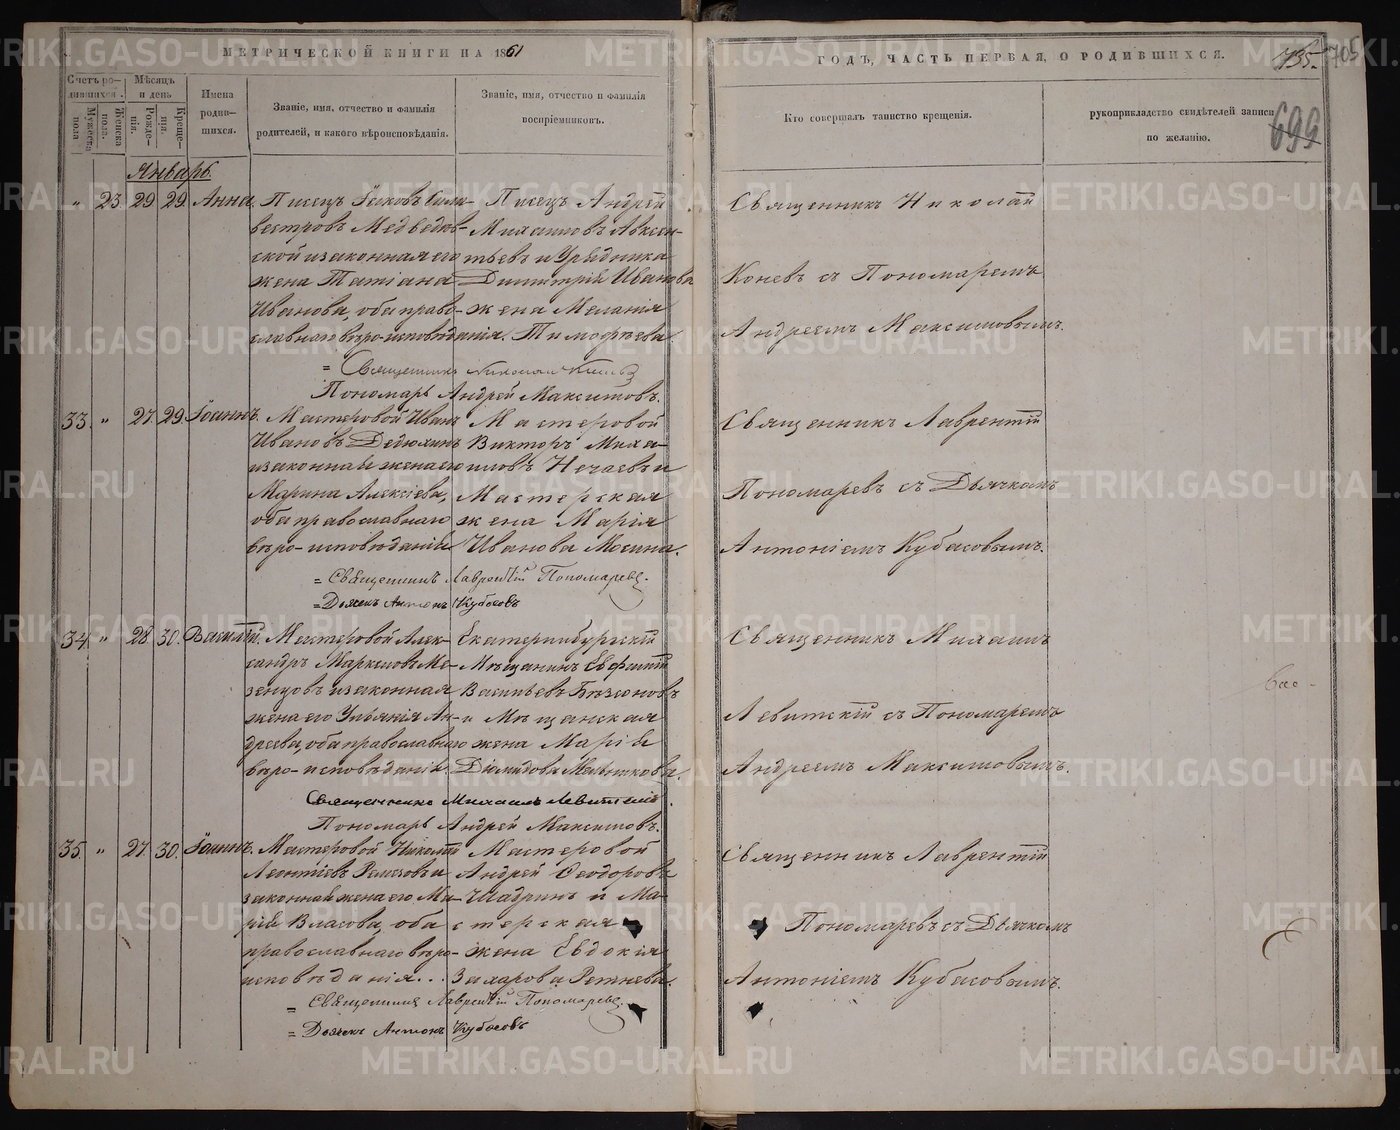 МЕТРИЧЕСКОЙ КНИГИ НА 1861
ГОДЪ, ЧАСТЬ ПЕРВАЯ, О РОДИВШИХСЯ.
735.
705
699
Счетъ ро-
дившихся.
Мужеска
пола
Женска
пола.
Мѣсяцъ
и день
Рожде-
нія.
Креще-
нія.
Имена
родив-
шихся.
Званіе, имя, отчество и фамилія
родителей, и какого вѣроисповѣданія.
Званіе, имя, отчество и фамилія
воспріемниковъ.
Кто совершалъ таинство крещенія.
рукоприкладство свидѣтелей записи
по желанію.
Январь
" 23. 29 29. Анна.
Писецъ Іаковъ Силь-
вестровъ Медвѣдев-
ской и законная его
жена Татіана
Иванова, оба право-
славнаго вѣро-исповѣданія.
Писецъ Андрей
Михаиловъ Авксен-
тьевъ и Урядника
Димитрія Иванова
жена Меланія
Тимофѣева
Священникъ Николай
Коневъ съ Пономаремъ
Андреемъ Максимовымъ.
= Священникъ Николай Коневъ
Пономарь Андрей Максимовъ.
33. " 27. 29. Іоаннъ.
Мастеровой Иванъ
Ивановъ Дедюхинъ
и законная жена его
Марина Алексіева,
оба православнаго
вѣро-исповѣданія
Мастеровой
Викторъ Миха-
иловъ Нечаевъ и
Мастерская
жена Марія
Иванова Мосина.
Священникъ Лаврентій
Пономаревъ съ Дьячкомъ
Антоніемъ Кубасовымъ.
= Священникъ Лаврентій Пономаревъ.
= Дьячекъ Антонъ Кубосовъ
34. " 28. 30. Василій.
Мастеровой Алек-
сандръ Маркеловъ Ме-
зенцовъ и законная
жена его Ульянія Ан-
дреева, оба православнаго
вѣро-исповѣданія.
Екатеринбургскій
Мѣщанинъ Евфимій
Васильевъ Безсоновъ
и Мѣщанская
жена Марія
Діомидова Мельникова.
Священникъ Михаилъ
Левитскій съ Пономаремъ
Андреемъ Максимовымъ.
Священникъ Михаилъ Левитскій.
Пономарь Андрей Максимовъ.
35. " 27. 30. Іоаннъ.
Мастеровой Николай
Леонтіевъ Ремезовъ и
законная жена его Ма-
рія Власова, оба
православнаго вѣро-
исповѣданія...
Мастеровой
Андрей Ѳеодоровъ
Шадринъ и Ма-
стерская
жена Евдокія
Захарова Ретнева.
Священникъ Лаврентій
Пономаревъ съ Дьячкомъ
Антоніемъ Кубасовымъ.
= Священникъ Лаврентій Пономаревъ.
= Дьячекъ Антонъ Кубосовъ
METRIKI.GASO-URAL.RU